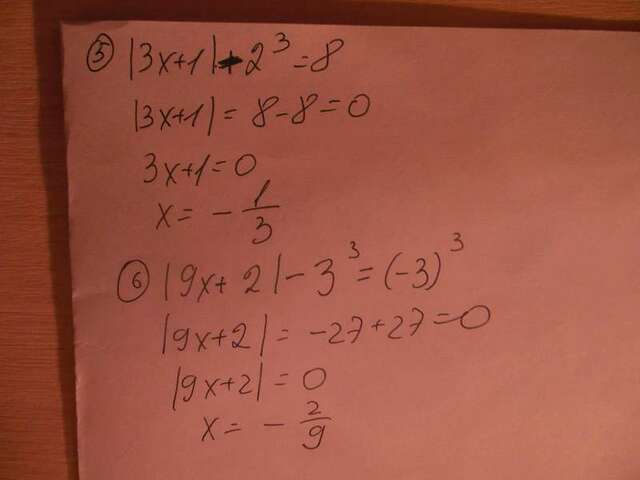 ⑤ |3x+1|+2³=8
|3x+1|=8-8=0
3x+1=0
x=-1/3
⑥ |9x+2|-3³=(-3)³
|9x+2|=-27+27=0
|9x+2|=0
x=-2/9